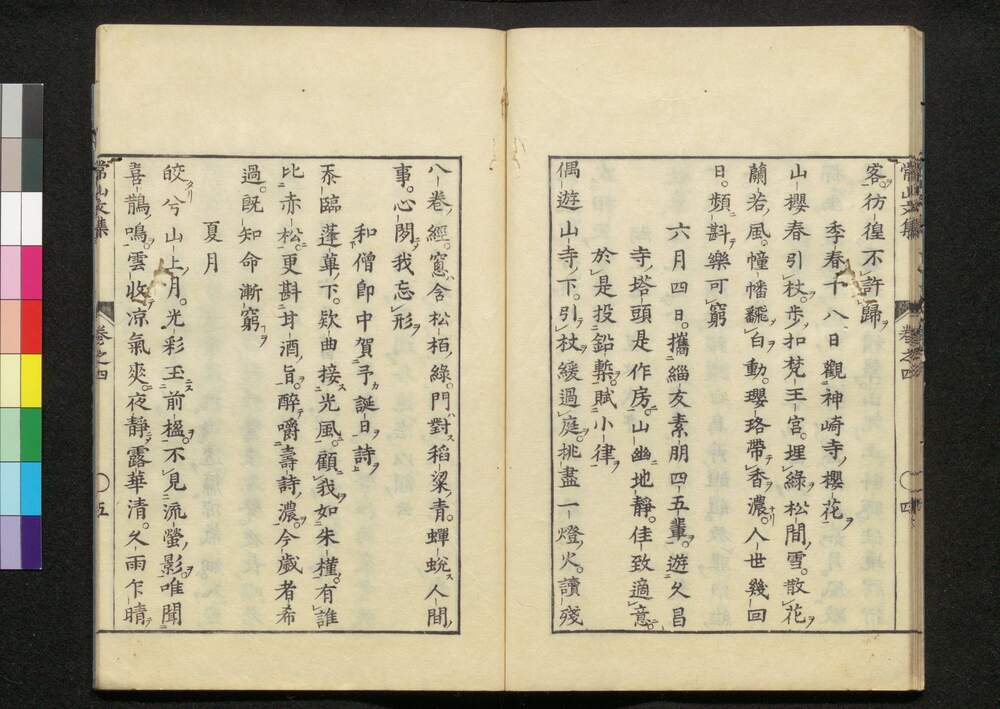 客彷徨不許歸
季春十八日觀神崎寺櫻花
山櫻春引杖步扣梵王宮埋綠松間雪散花
蘭若風幢幡飜自動瓔珞帶香濃人世幾回
日頻斟樂可窮
六月四日攜緇友素朋四五輩遊久昌
寺塔頭是作房山幽地靜佳致適意
於是投鉛槧賦小律
偶遊山寺下引杖緩過庭挑盡一燈火讀殘
常山文集
卷之四
四
八卷經窓含松栢綠門對稻粱青蟬蛻人間
事心閑我忘形
和僧卽中賀予誕日詩
忝臨蓬蓽下欵曲接光風顧我如朱槿有誰
比赤松更斟甘酒旨醉嚼壽詩濃今歲者希
過旣知命漸窮
夏月
皎兮山上月光彩玉前楹不見流螢影唯聞
喜鵲鳴雲收凉氣爽夜靜露華清久雨乍晴
常山文集
卷之四
五